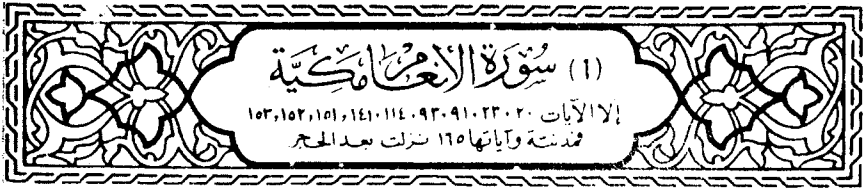 (٦) سُورَةُ الأَنعَامِ مَكِيَّة
إلا الآيات ٢٠، ٢٣، ٩١، ٩٣، ١١٤، ١٤١، ١٥١، ١٥٢، ١٥٣
فمدنية وآياتها ١٦٥ نزلت بعد الحجر